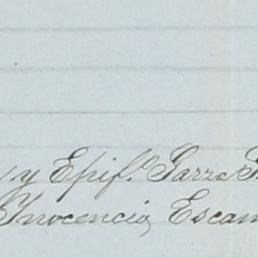 y Epif.º Garza
Inocencio Escam